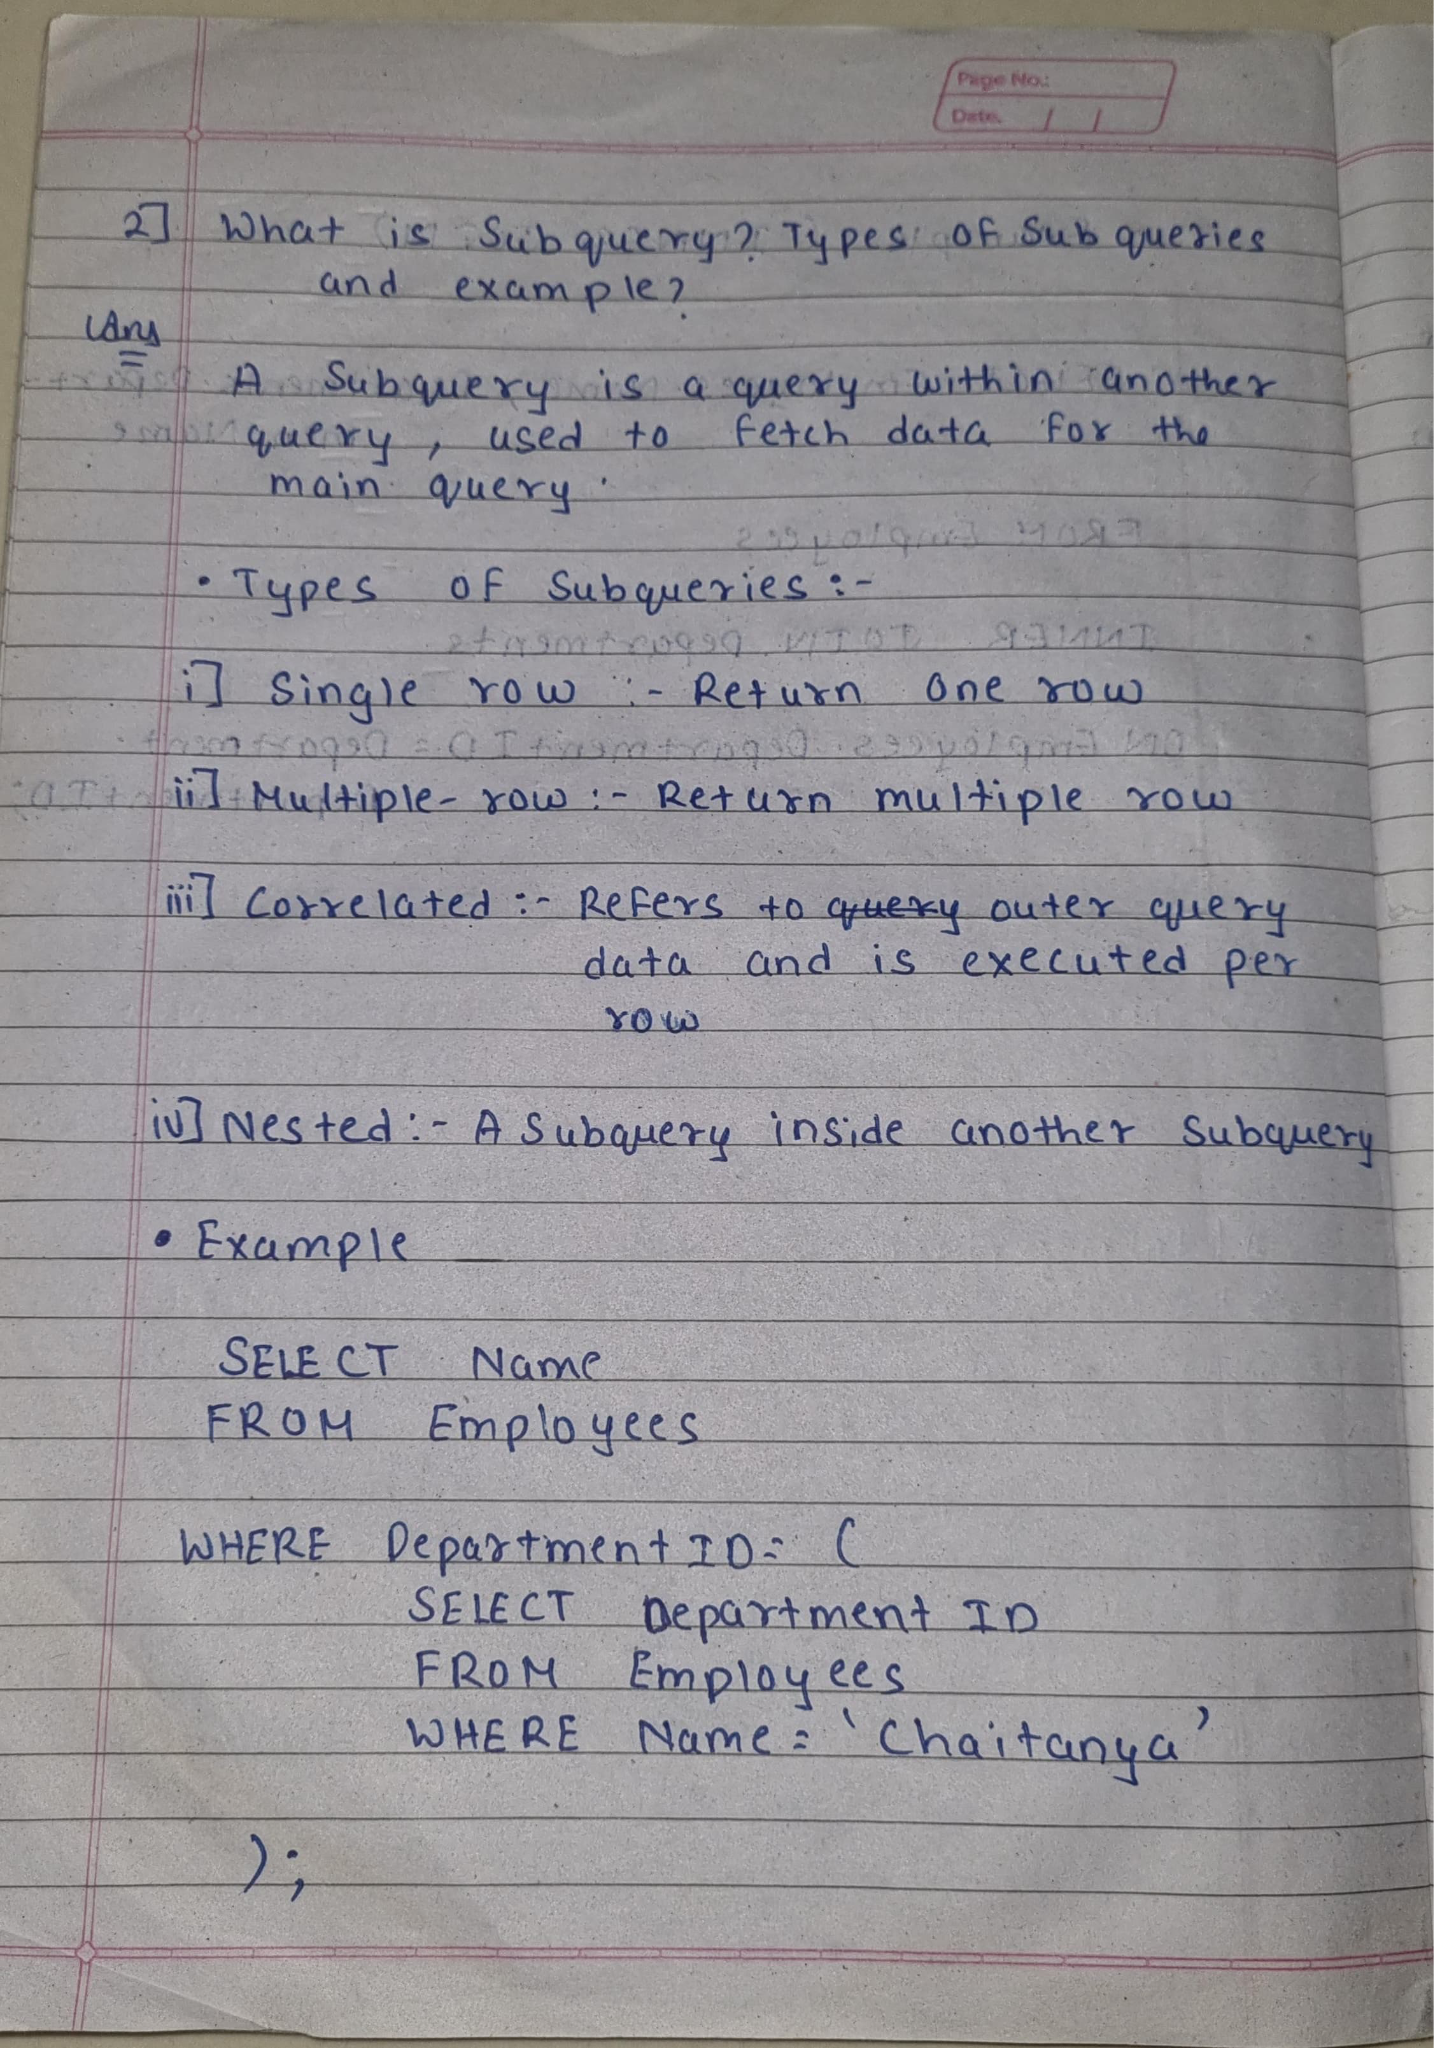 Page No.:
Date. / /
2] What is Subquery? Types of Sub queries
and example?
Ans
A Subquery is a query within another
query, used to fetch data for the
main query.
• Types of Subqueries :-
i] Single row :- Return one row
ii] Multiple-row :- Return multiple row
iii] Correlated :- Refers to query outer query
data and is executed per
row
iv] Nested :- A Subquery inside another Subquery
• Example
SELECT Name
FROM Employees
WHERE Department ID = (
SELECT Department ID
FROM Employees
WHERE Name = 'Chaitanya'
);